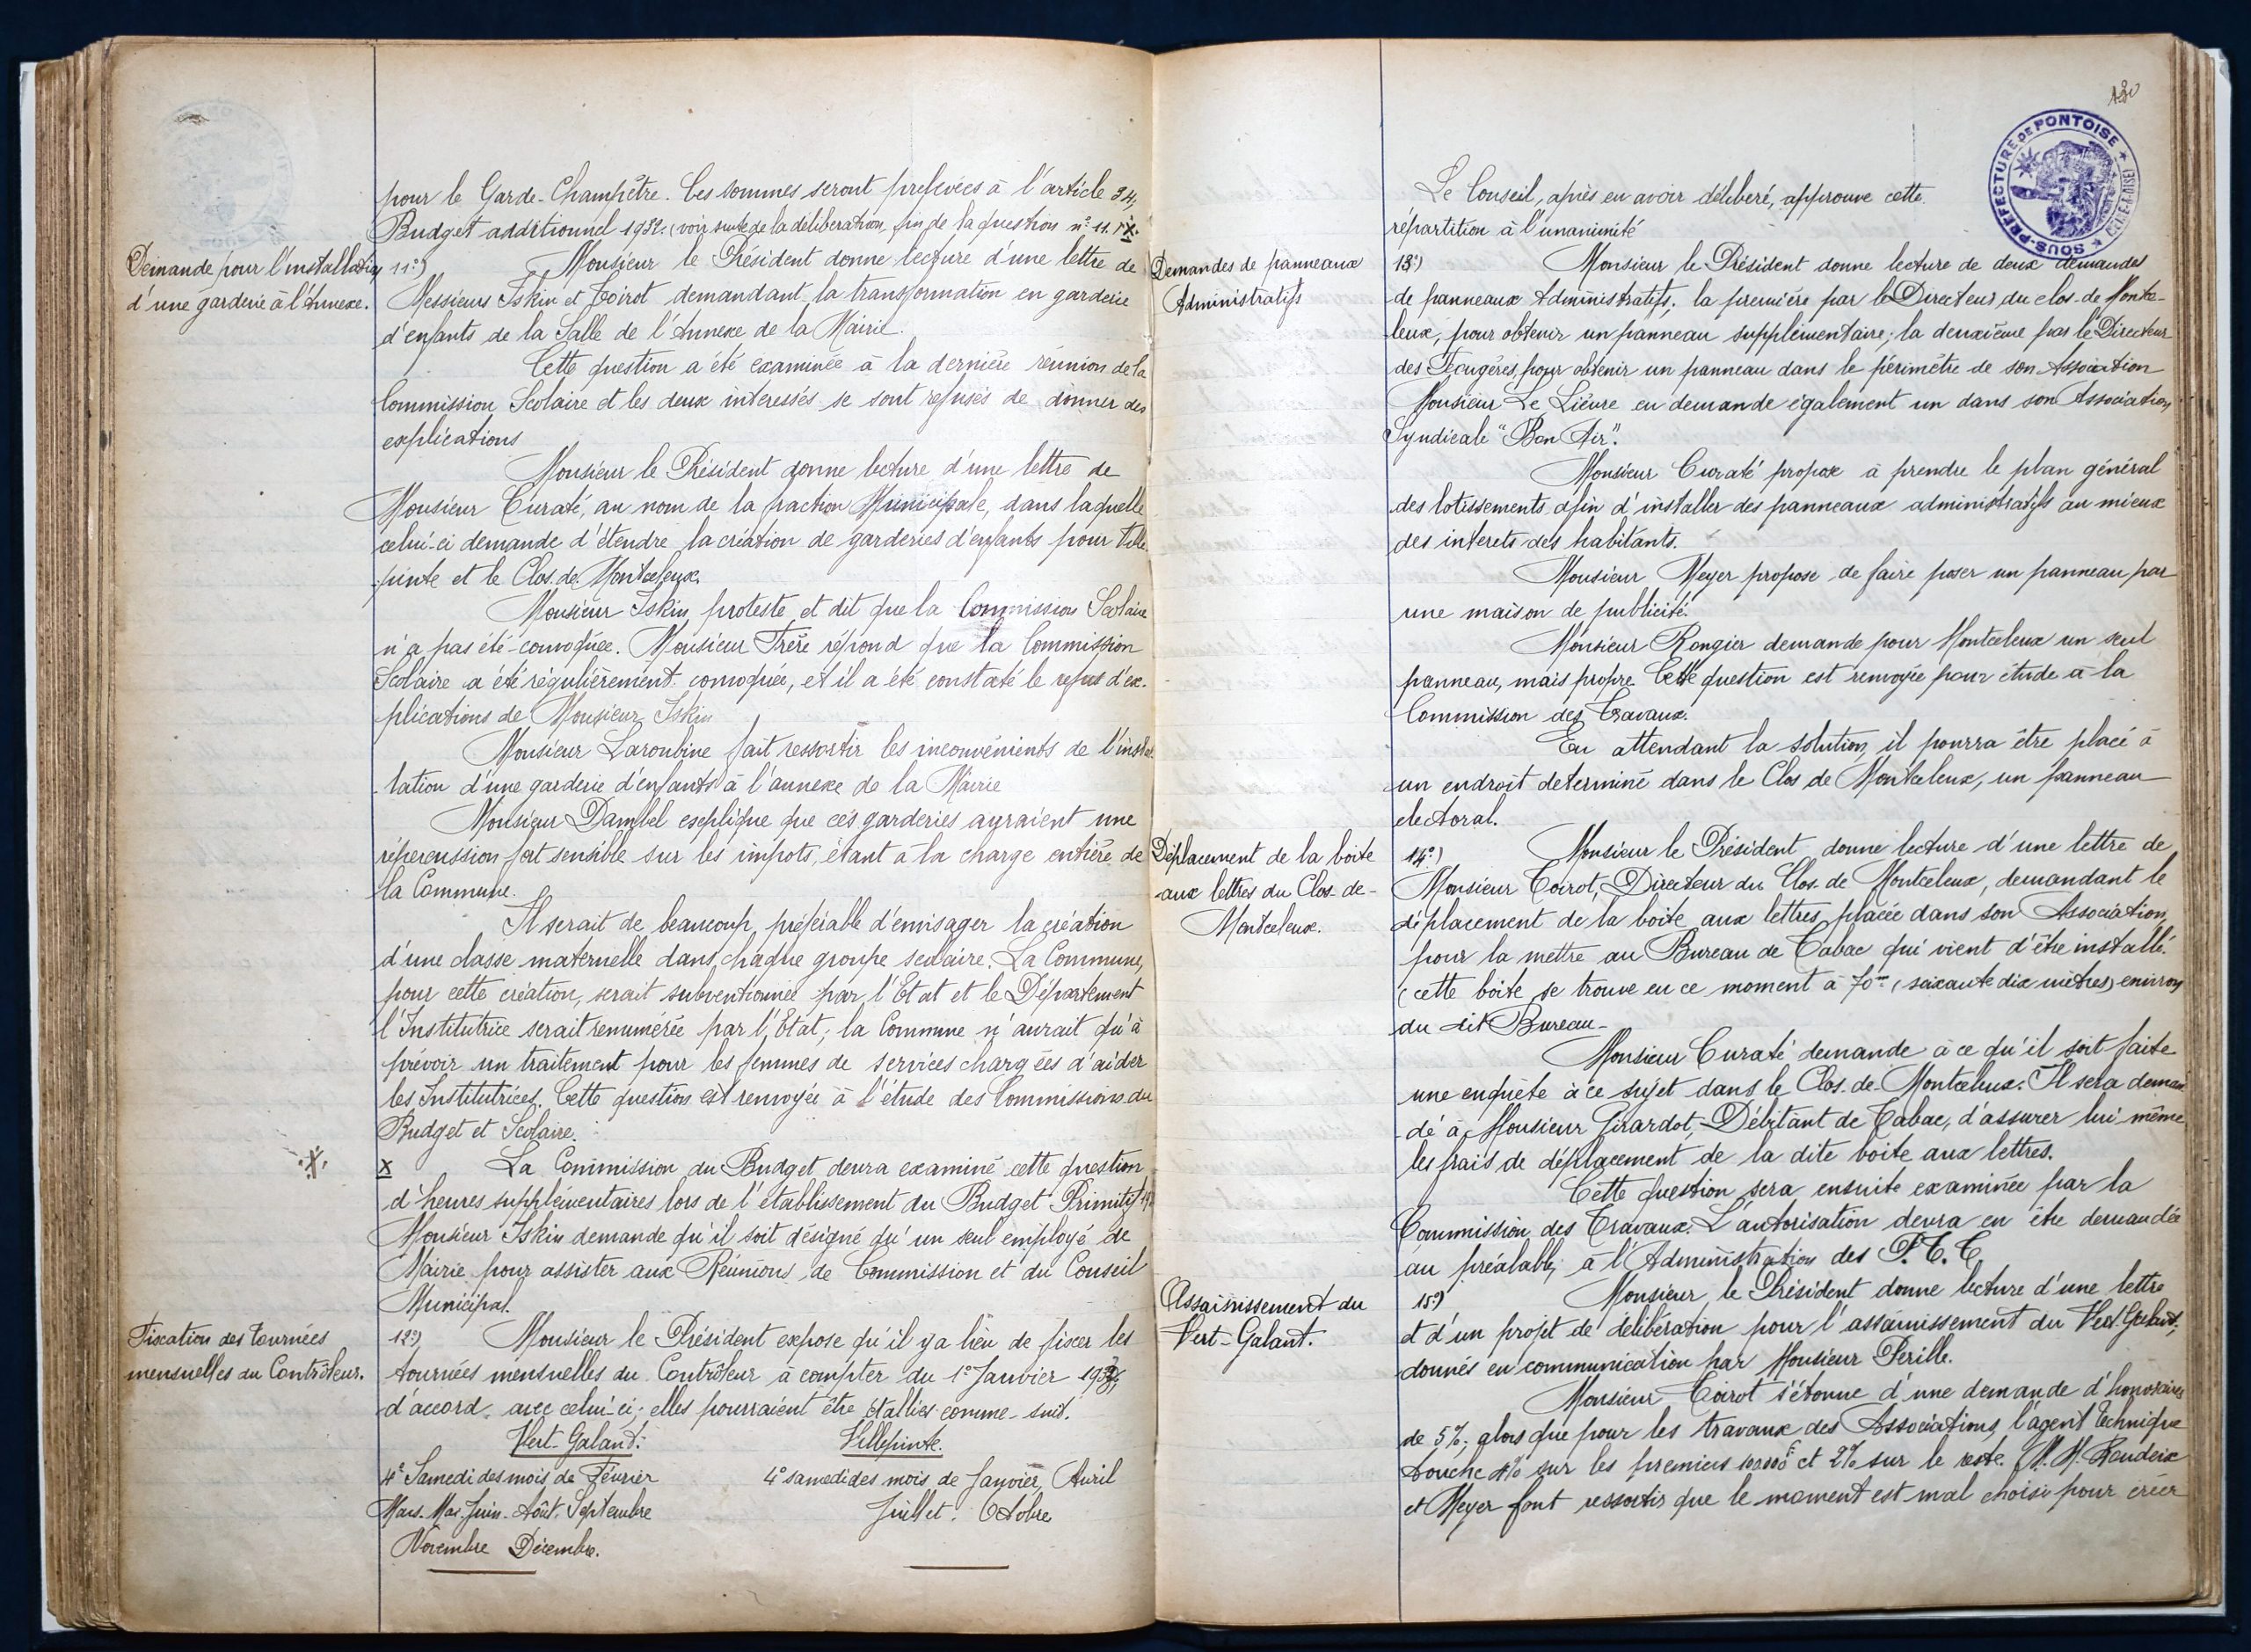 pour le Garde-Champêtre. Ces sommes seront prélevées à l'article 34,
Budget additionnel 1932. (voir suite de la délibération, fin de la question n° 11. X.
Demande pour l'installation
d'une garderie à l'Annexe.
11°) Monsieur le Président donne lecture d'une lettre de
Messieurs Iskin et Toirot demandant la transformation en garderie
d'enfants de la Salle de l'Annexe de la Mairie.
Cette question a été examinée à la dernière réunion de la
Commission Scolaire et les deux interessés se sont refusés de donner des
explications
Monsieur le Président donne lecture d'une lettre de
Monsieur Curaté, au nom de la fraction Municipale, dans laquelle
celui-ci demande d'étendre la création de garderies d'enfants pour Ville-
-pinte et le Clos. de. Montceleux.
Monsieur Iskin, proteste, et dit que la Commission Scolaire
n'a pas été convoquée. Monsieur Frère répond que la Commission
Scolaire a été régulièrement convoquée, et il a été constaté le refus d'ex-
plications de Monsieur Iskin
Monsieur Laroubine fait ressortir les inconvénients de l'instal-
-lation d'une garderie d'enfants à l'annexe de la Mairie
Monsieur Dambel explique que ces garderies auraient une
répercussion fort sensible sur les impots, étant à la charge entière de
la Commune.
Il serait de beaucoup préférable d'envisager la création
d'une classe maternelle dans chaque groupe scolaire. La Commune,
pour cette création, serait subventionnée par l'Etat et le Département
l'Institutrice serait renumérée par l'Etat; la Commune n'aurait qu'à
prévoir un traitement pour les femmes de services chargées d'aider
les Institutrices. Cette question est renvoyée à l'étude des Commissions du
Budget et Scolaire.
X La Commission du Budget devra examiné cette question
d'heures supplémentaires lors de l'établissement du Budget Primitif
Monsieur Iskin demande qu'il soit désigné qu'un seul employé de
Mairie pour assister aux Réunions de Commission et du Conseil
Municipal.
Fixation des tournées
mensuelles du Contrôleur.
12°) Monsieur le Président expose qu'il y a lieu de fixer les
tournées mensuelles du Contrôleur à compter du 1° Janvier
d'accord avec celui-ci; elles pourraient être établies comme-suit.
Vert-Galand: Villepinte.
4° Samedi des mois de Février 4° samedi des mois de Janvier, Avril
Mars. Mai. Juin. Août. Septembre Juillet. Octobre
Novembre Décembre.
SOUS-PREFECTURE DE PONTOISE
Le Conseil, après en avoir déliberé, approuve cette
répartition à l'unanimité
Demandes de panneaux
Administratifs
13°) Monsieur le Président donne lecture de deux demandes
de panneaux Administratifs; la première par le Directeur du clos-de Montce-
-leux, pour obtenir un panneau supplémentaire; la deuxième par le Directeur
des Fougères, pour obtenir un panneau dans le périmètre de son Association
Monsieur Le Lièvre en demande également un dans son Association
Syndicale "Bon Air".
Monsieur Curaté propose à prendre le plan général
des lotissements afin d'installer des panneaux administratifs au mieux
des interets des habitants.
Monsieur Meyer propose de faire poser un panneau par
une maison de publicité.
Monsieur Rongier demande pour Montceleux un seul
panneau, mais propre. Cette question est renvoyée pour étude à la
Commission des Travaux.
En attendant la solution, il pourra être placé à
un endroit determiné dans le Clos de Montceleux, un panneau
electoral.
Déplacement de la boite
aux lettres du Clos-de-
Montceleux.
14°) Monsieur le Président donne lecture d'une lettre de
Monsieur Toirot, Directeur du Clos. de Montceleux, demandant le
déplacement de la boite aux lettres placée dans son Association,
pour la mettre au Bureau de Tabac qui vient d'être installé.
(cette boite se trouve en ce moment à 70m (soixante dix mètres) environ
du dit Bureau-
Monsieur Curaté demande à ce qu'il soit faite
une enquête à ce sujet dans le Clos. de. Montceleux. Il sera deman
-dé à Monsieur Girardot, Débitant de Tabac, d'assurer lui même
les frais de déplacement de la dite boite aux lettres.
Cette question sera ensuite examinée par la
Commission des Travaux. L'autorisation devra en être demandée
au préalable, à l'Administration des P.T.T.
Assainissement du
Vert-Galant.
15°) Monsieur le Président donne lecture d'une lettre
et d'un projet de délibération pour l'assainissement du Vert Galant,
donnés en communication par Monsieur Perille.
Monsieur Toirot s'étonne d'une demande d'honoraires
de 5%; alors que pour les travaux des Associations, l'agent technique
touche 4% sur les premiers et 2% sur le reste. M.M. Baudeix
et Meyer font ressortir que le moment est mal choisi pour créer